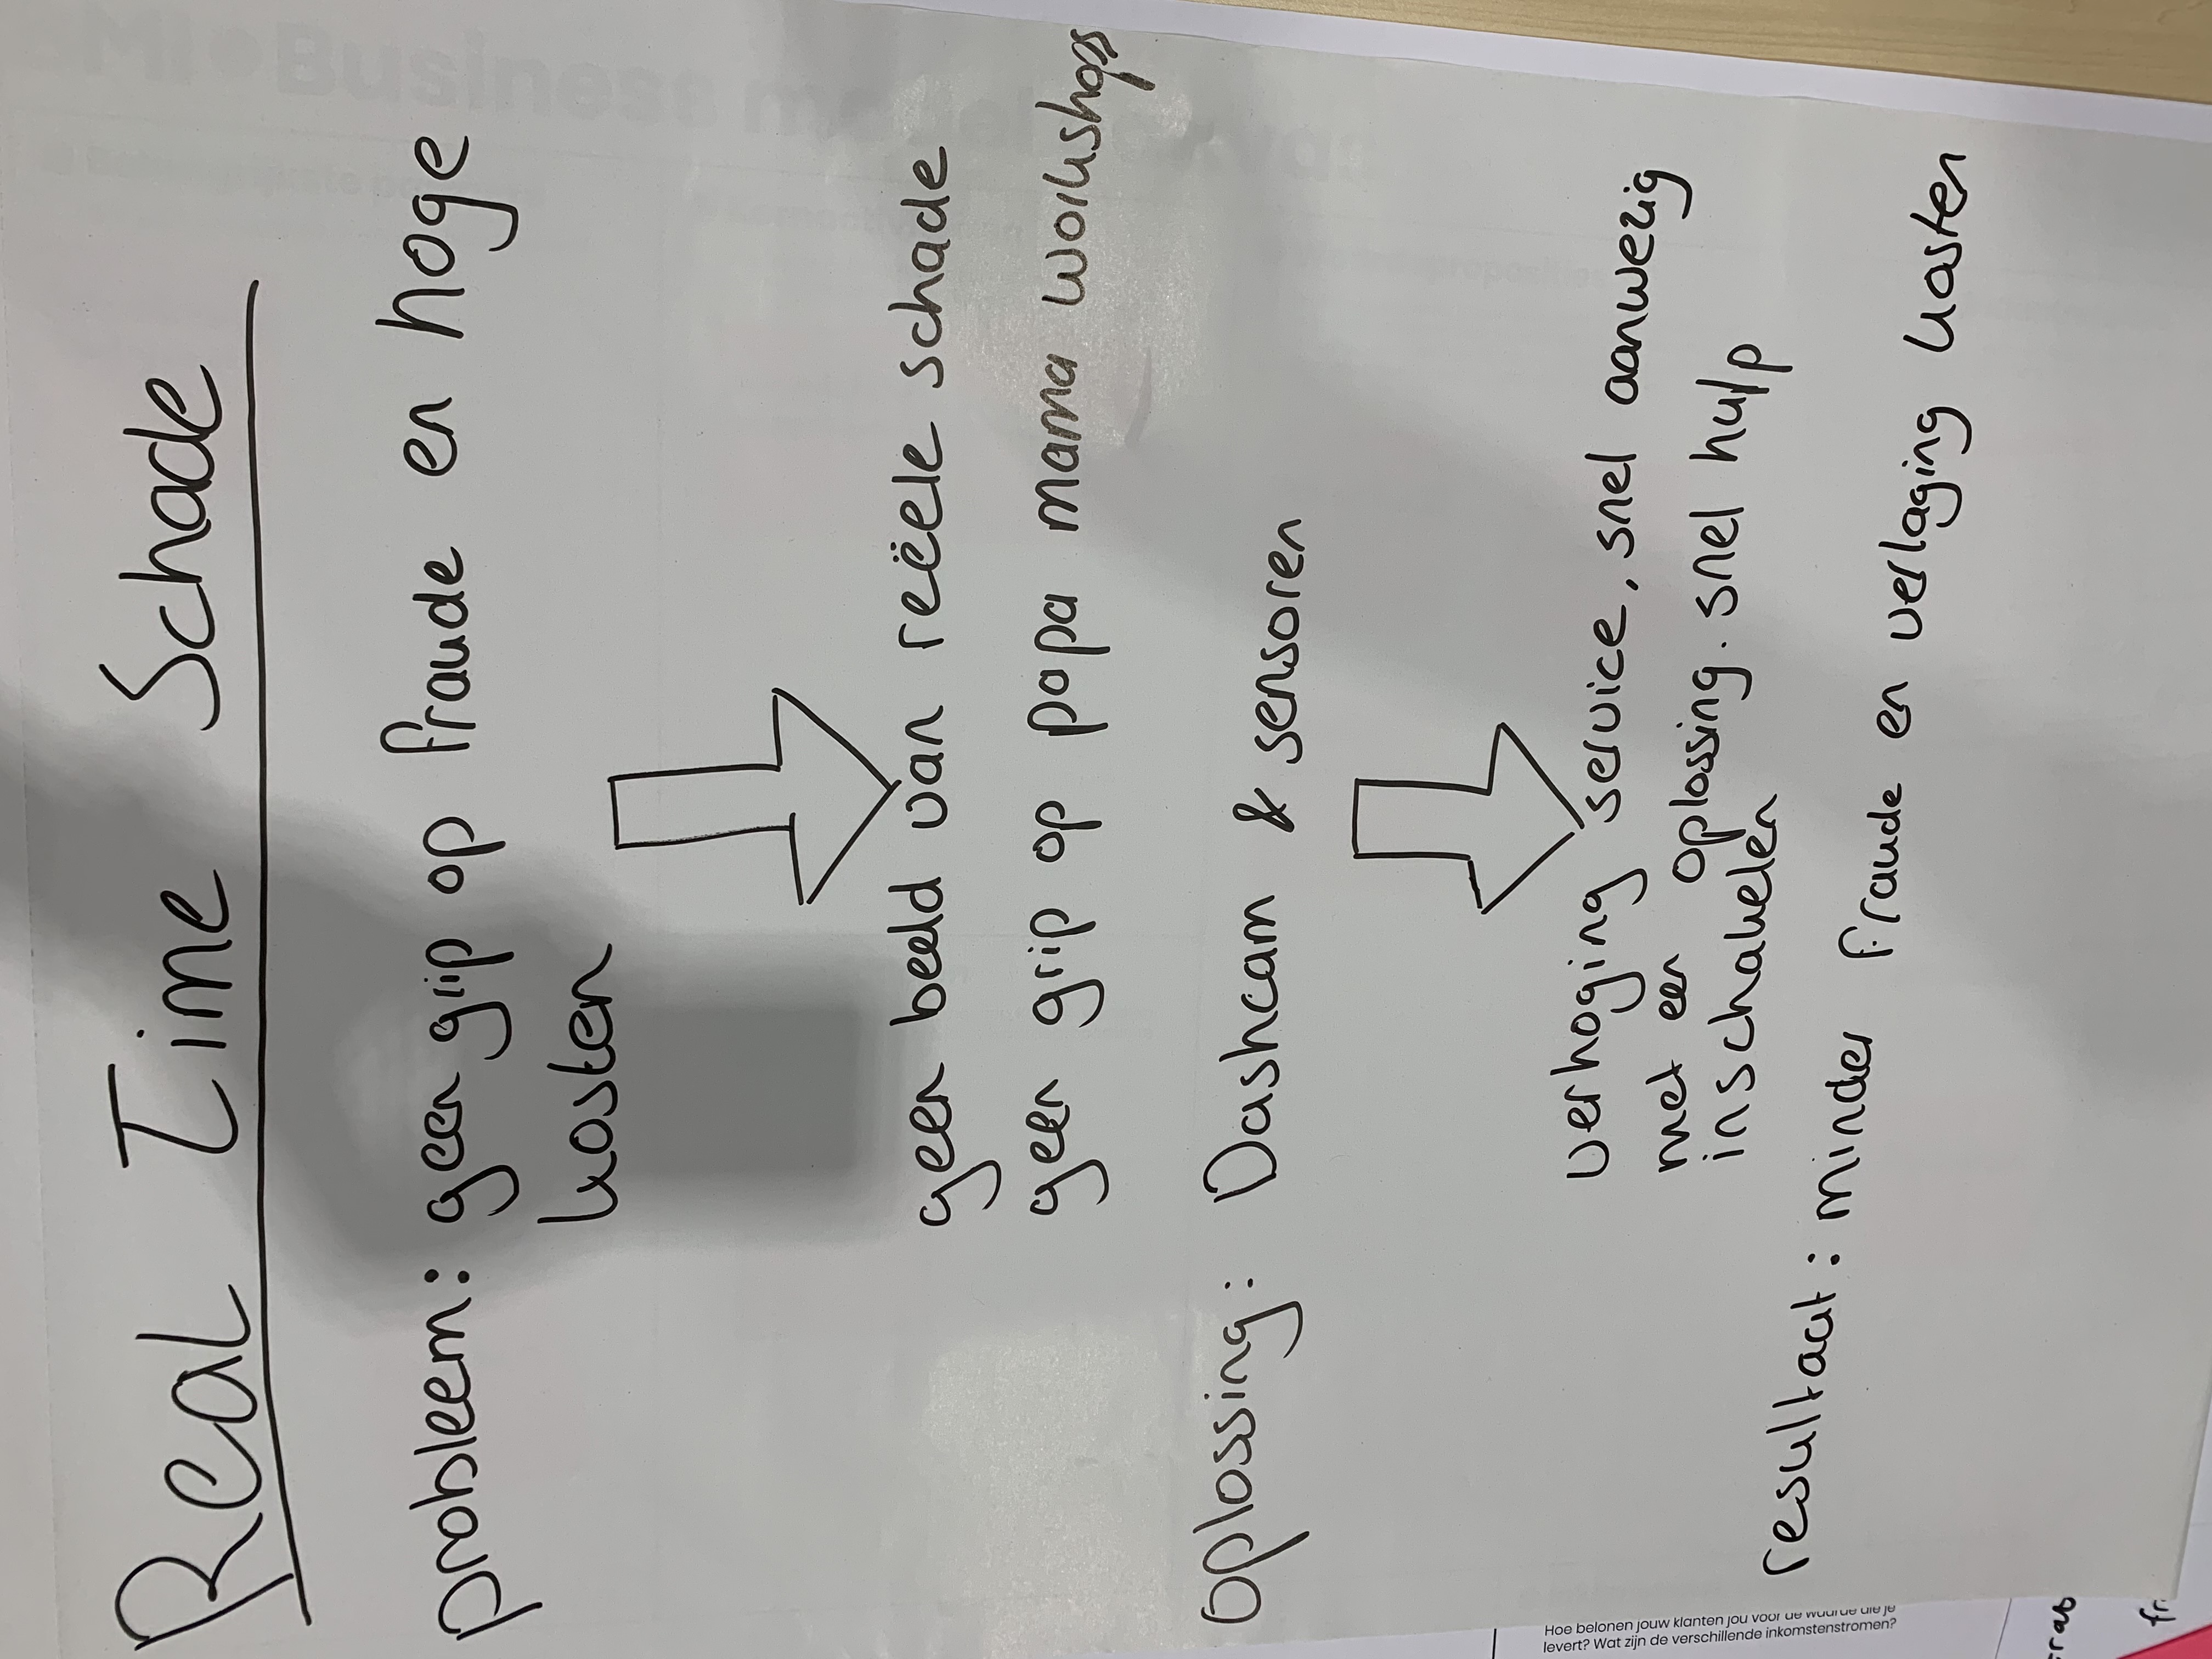 Real Time Schade
probleem: geen grip op fraude en hoge
kosten
geen beeld van reële schade
geen grip op papa mama workshops
Oplossing: Dashcam & sensoren
verhoging service, snel aanwezig
met een oplossing. snel hulp
inschakelen
resultaat: minder fraude en verlaging kosten
Hoe belonen jouw klanten jou voor de waarde die je
levert? Wat zijn de verschillende inkomstenstromen?
MI Business model